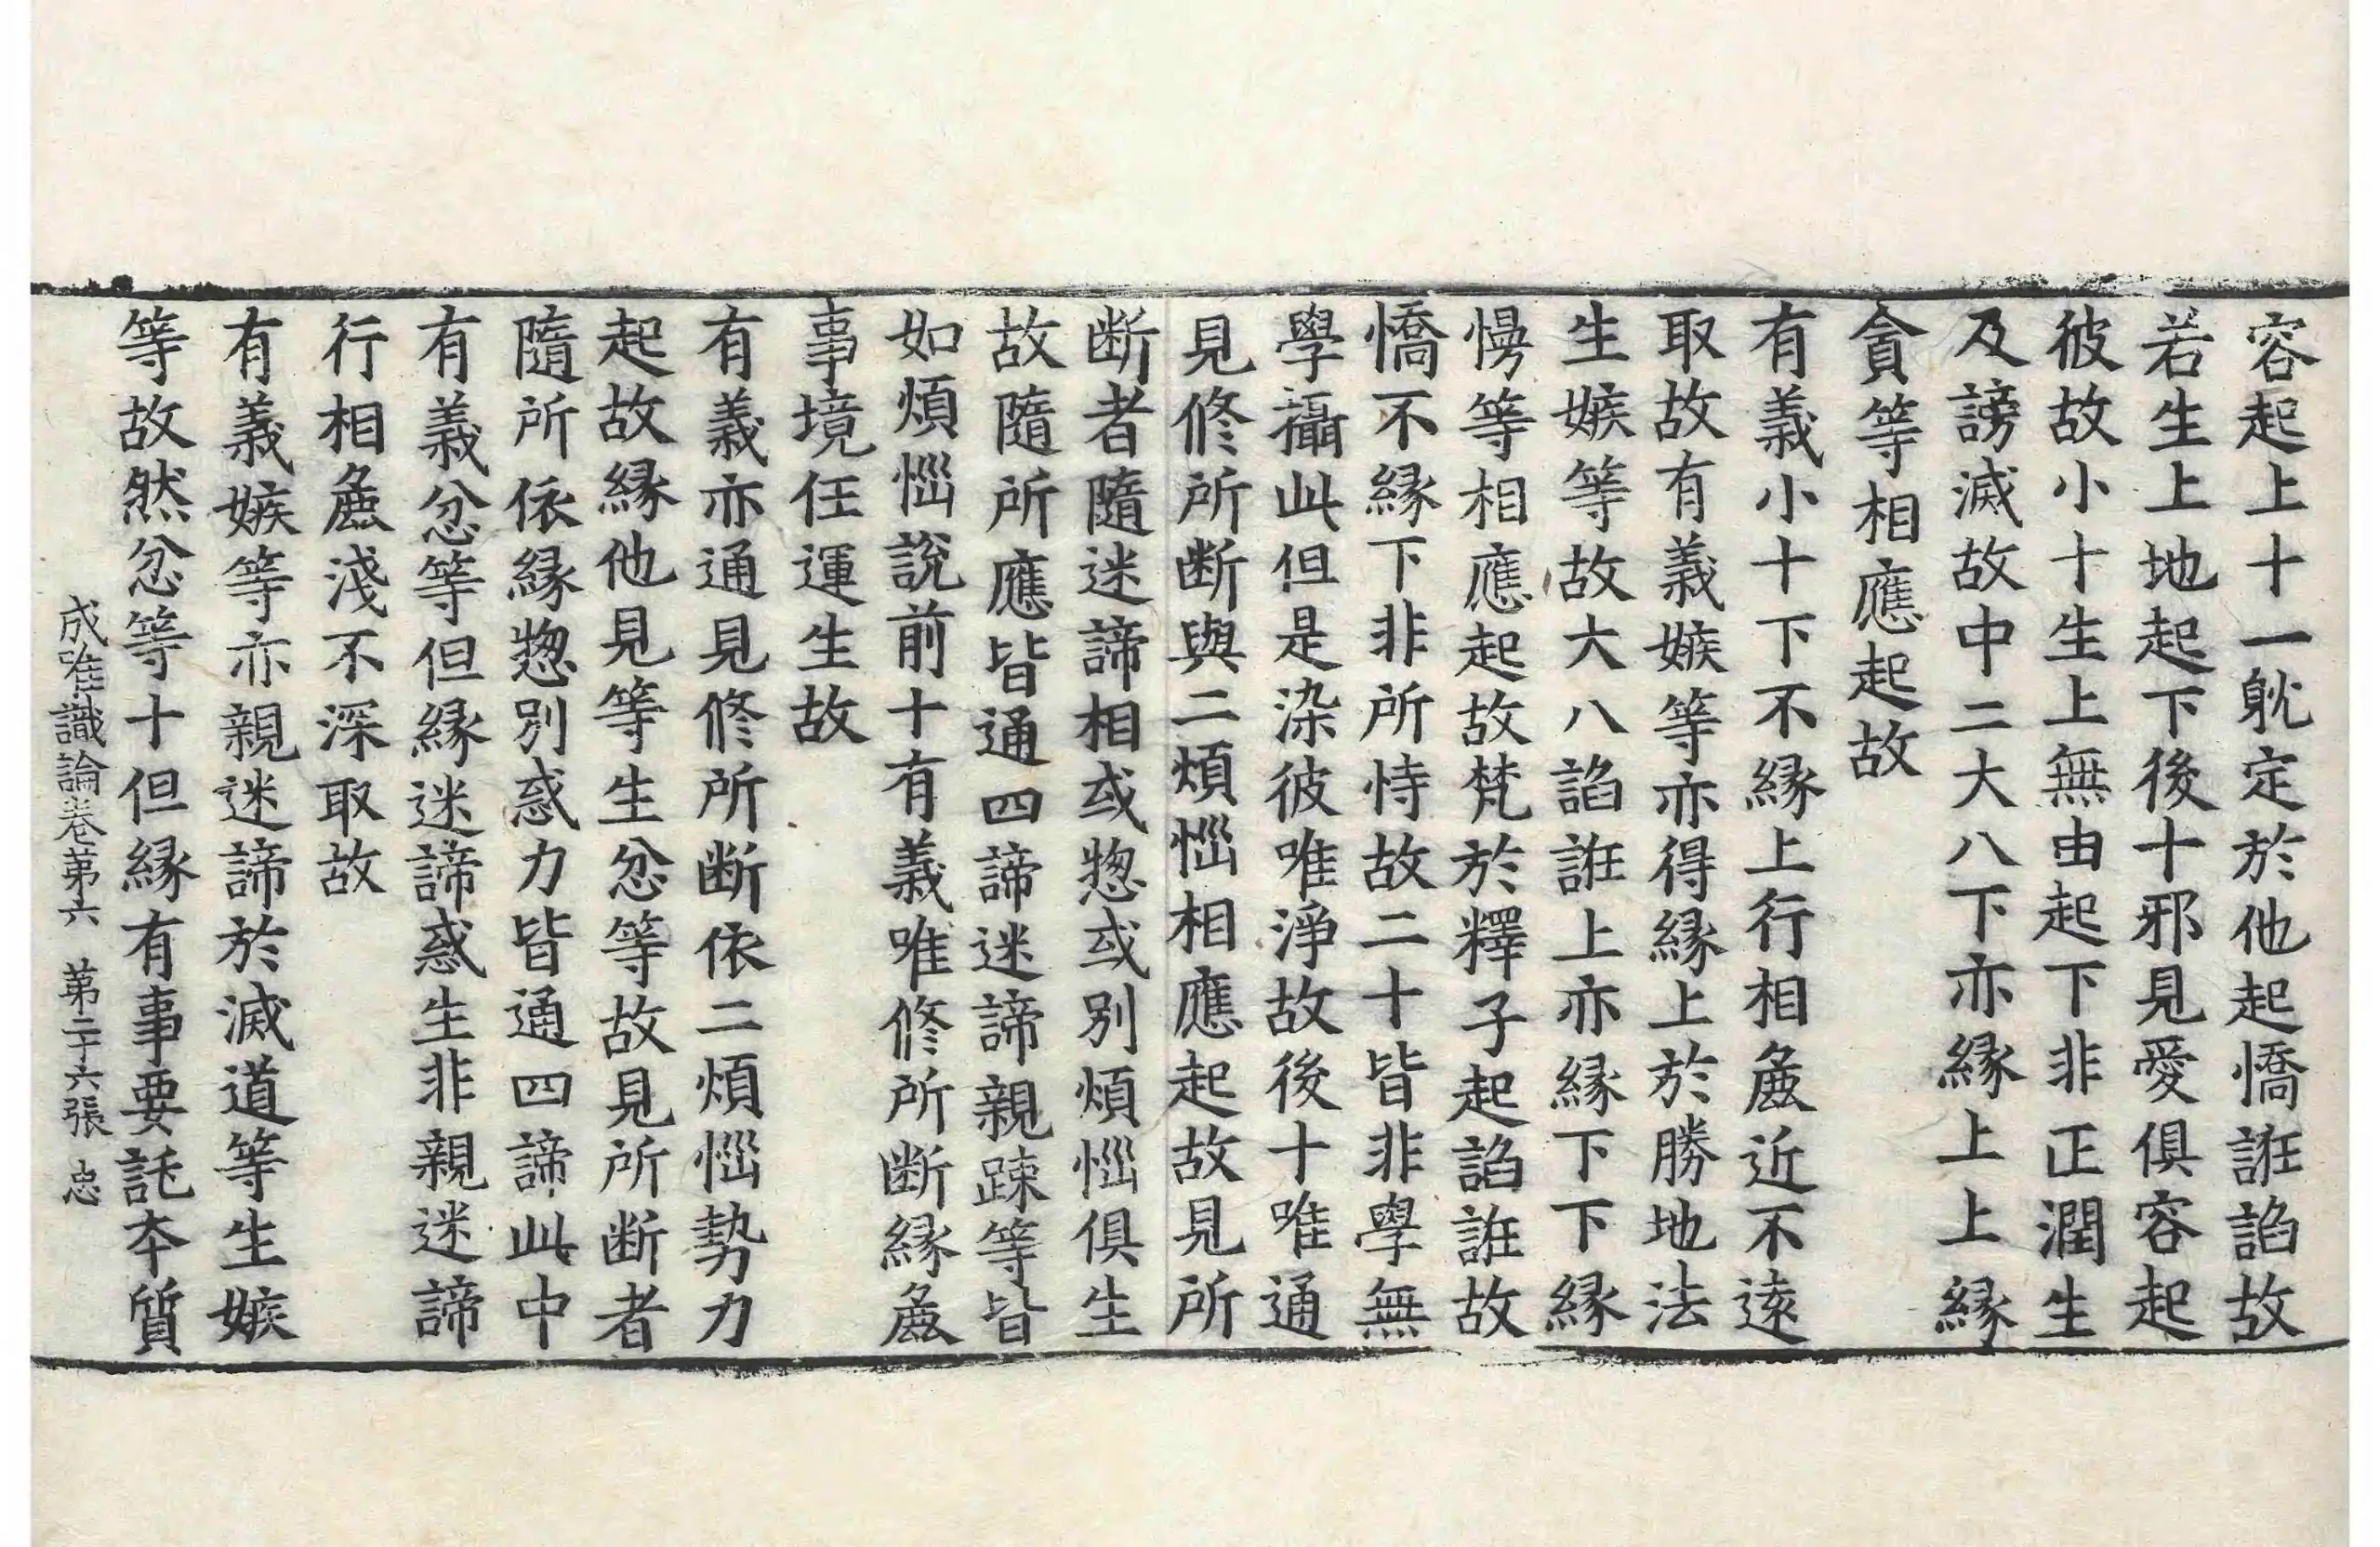 容起上十一躭定於他起憍誑諂故
若生上地起下後十邪見愛俱容起
彼故小十生上無由起下非正潤生
及謗滅故中二大八下亦縁上上縁
貪等相應起故
有義小十下不縁上行相麁近不遠
取故有義嫉等亦得縁上於勝地法
生嫉等故大八諂誑上亦縁下下縁
慢等相應起故梵於釋子起諂誑故
憍不縁下非所恃故二十皆非學無
學攝此但是染彼唯淨故後十唯通
見修所断與二煩惱相應起故見所
断者隨迷諦相或惣或別煩惱俱生
故隨所應皆通四諦迷諦親疎等皆
如煩惱說前十有義唯修所断縁麁
事境任運生故
有義亦通見修所断依二煩惱勢力
起故縁他見等生忿等故見所断者
隨所依縁惣別惑力皆通四諦此中
有義忿等但縁迷諦惑生非親迷諦
行相麁淺不深取故
有義嫉等亦親迷諦於滅道等生嫉
等故然忿等十但縁有事要託夲質
成唯識論卷苐六　苐二十六張　忠